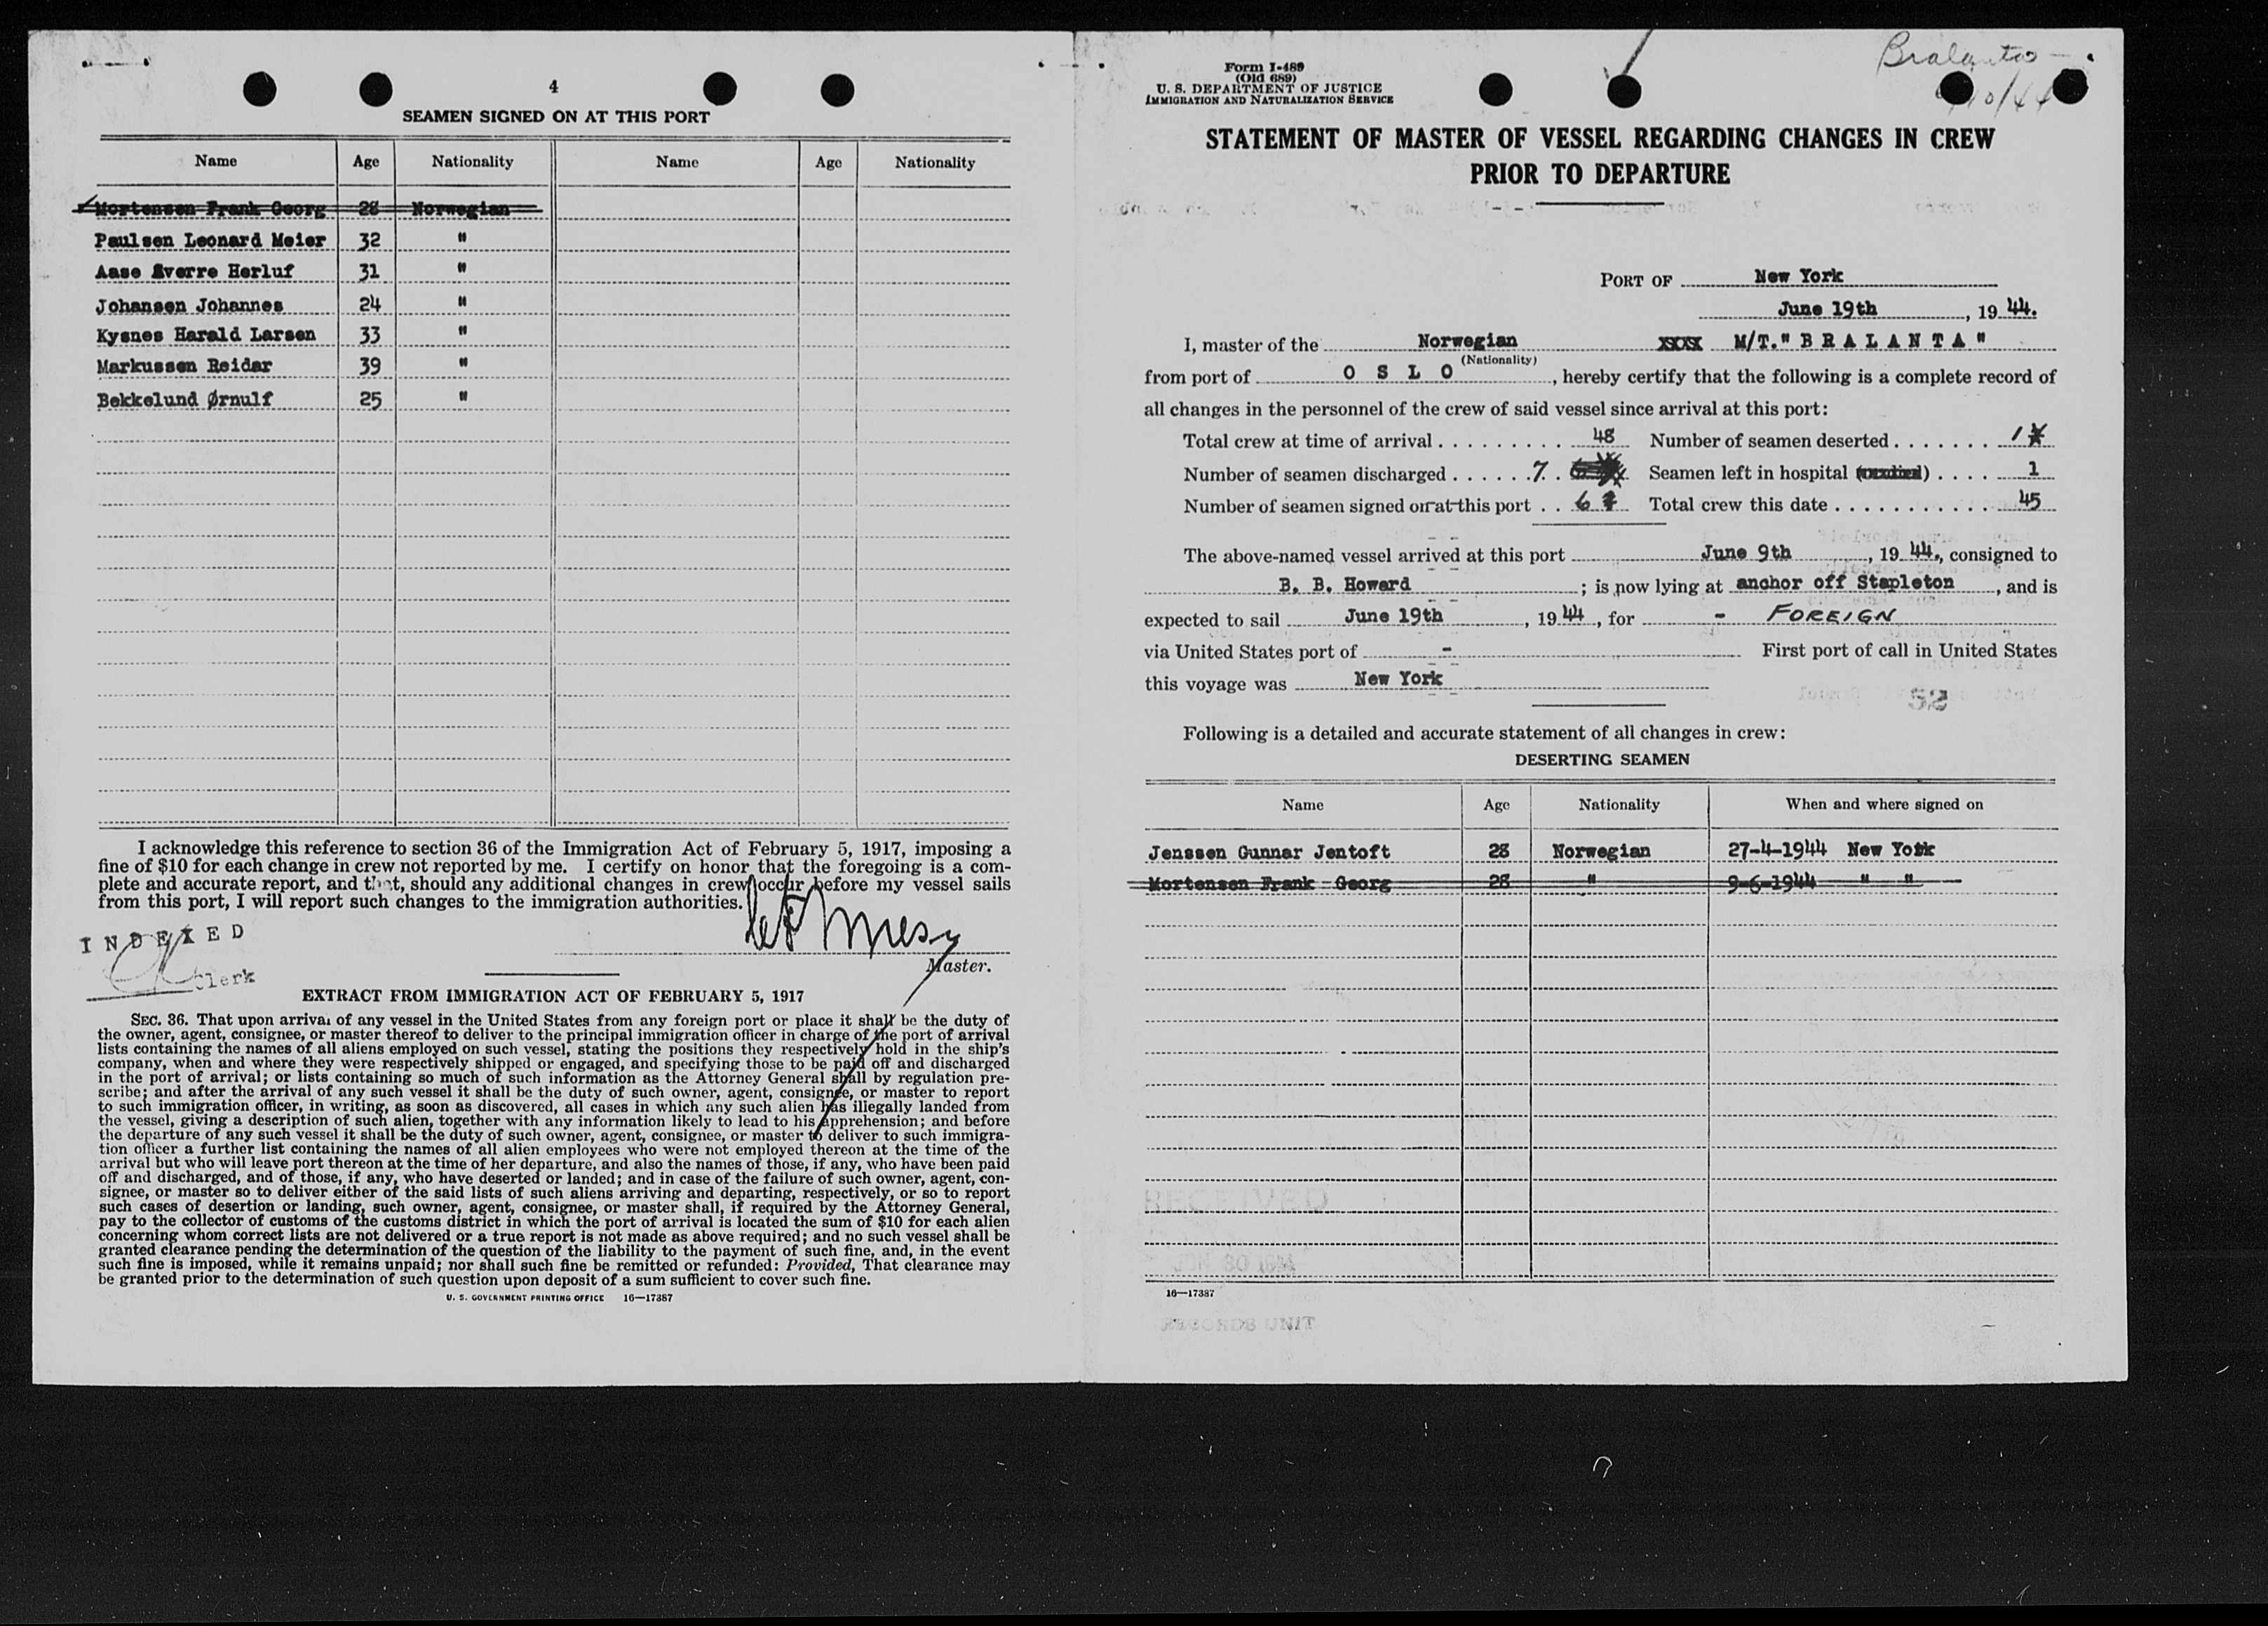 4
SEAMEN SIGNED ON AT THIS PORT
Name Age Nationality Name Age Nationality
Mortensen Frank Georg 28 Norwegian
Paulsen Leonard Meier 32 "
Aase Sverre Herluf 31 "
Johansen Johannes 24 "
Kysnes Harald Larsen 33 "
Markussen Reidar 39 "
Bekkelund Ørnulf 25 "
I acknowledge this reference to section 36 of the Immigration Act of February 5, 1917, imposing a
fine of $10 for each change in crew not reported by me. I certify on honor that the foregoing is a com-
plete and accurate report, and that, should any additional changes in crew occur before my vessel sails
from this port, I will report such changes to the immigration authorities.
INDEXED
Clerk
Master.
EXTRACT FROM IMMIGRATION ACT OF FEBRUARY 5, 1917
SEC. 36. That upon arrival of any vessel in the United States from any foreign port or place it shall be the duty of
the owner, agent, consignee, or master thereof to deliver to the principal immigration officer in charge of the port of arrival
lists containing the names of all aliens employed on such vessel, stating the positions they respectively hold in the ship's
company, when and where they were respectively shipped or engaged, and specifying those to be paid off and discharged
in the port of arrival; or lists containing so much of such information as the Attorney General shall by regulation pre-
scribe; and after the arrival of any such vessel it shall be the duty of such owner, agent, consignee, or master to report
to such immigration officer, in writing, as soon as discovered, all cases in which any such alien has illegally landed from
the vessel, giving a description of such alien, together with any information likely to lead to his apprehension; and before
the departure of any such vessel it shall be the duty of such owner, agent, consignee, or master to deliver to such immigra-
tion officer a further list containing the names of all alien employees who were not employed thereon at the time of the
arrival but who will leave port thereon at the time of her departure, and also the names of those, if any, who have been paid
off and discharged, and of those, if any, who have deserted or landed; and in case of the failure of such owner, agent, con-
signee, or master so to deliver either of the said lists of such aliens arriving and departing, respectively, or so to report
such cases of desertion or landing, such owner, agent, consignee, or master shall, if required by the Attorney General,
pay to the collector of customs of the customs district in which the port of arrival is located the sum of $10 for each alien
concerning whom correct lists are not delivered or a true report is not made as above required; and no such vessel shall be
granted clearance pending the determination of the question of the liability to the payment of such fine, and, in the event
such fine is imposed, while it remains unpaid; nor shall such fine be remitted or refunded: Provided, That clearance may
be granted prior to the determination of such question upon deposit of a sum sufficient to cover such fine.
U. S. GOVERNMENT PRINTING OFFICE 16—17387
Form I-489
(Old 689)
U. S. DEPARTMENT OF JUSTICE
IMMIGRATION AND NATURALIZATION SERVICE
STATEMENT OF MASTER OF VESSEL REGARDING CHANGES IN CREW
PRIOR TO DEPARTURE
PORT OF New York
June 19th, 19 44.
I, master of the Norwegian XXXX M/T. "BRALANTA"
(Nationality)
from port of OSLO, hereby certify that the following is a complete record of
all changes in the personnel of the crew of said vessel since arrival at this port:
Total crew at time of arrival . . . . . . . . . 48 Number of seamen deserted . . . . . . . 1
Number of seamen discharged . . . . . . 7 Seamen left in hospital . . . . 1
Number of seamen signed on at this port . . 6 Total crew this date . . . . . . . . . . . 45
The above-named vessel arrived at this port June 9th, 19 44., consigned to
B. B. Howard; is now lying at anchor off Stapleton, and is
expected to sail June 19th, 19 44, for - FOREIGN
via United States port of - First port of call in United States
this voyage was New York
Following is a detailed and accurate statement of all changes in crew:
DESERTING SEAMEN
Name Age Nationality When and where signed on
Jenssen Gunnar Jentoft 28 Norwegian 27-4-1944 New York
Mortensen Frank Georg 28 " 9-6-1944 " "
RECEIVED
16—17387
RECORDS UNIT